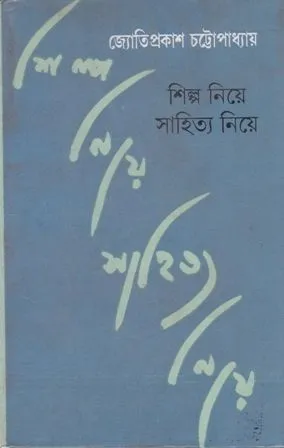 জ্যোতিপ্রকাশ চট্টোপাধ্যায়
শিল্প নিয়ে
সাহিত্য নিয়ে
শিল্প
নিয়ে
সাহিত্য
নিয়ে